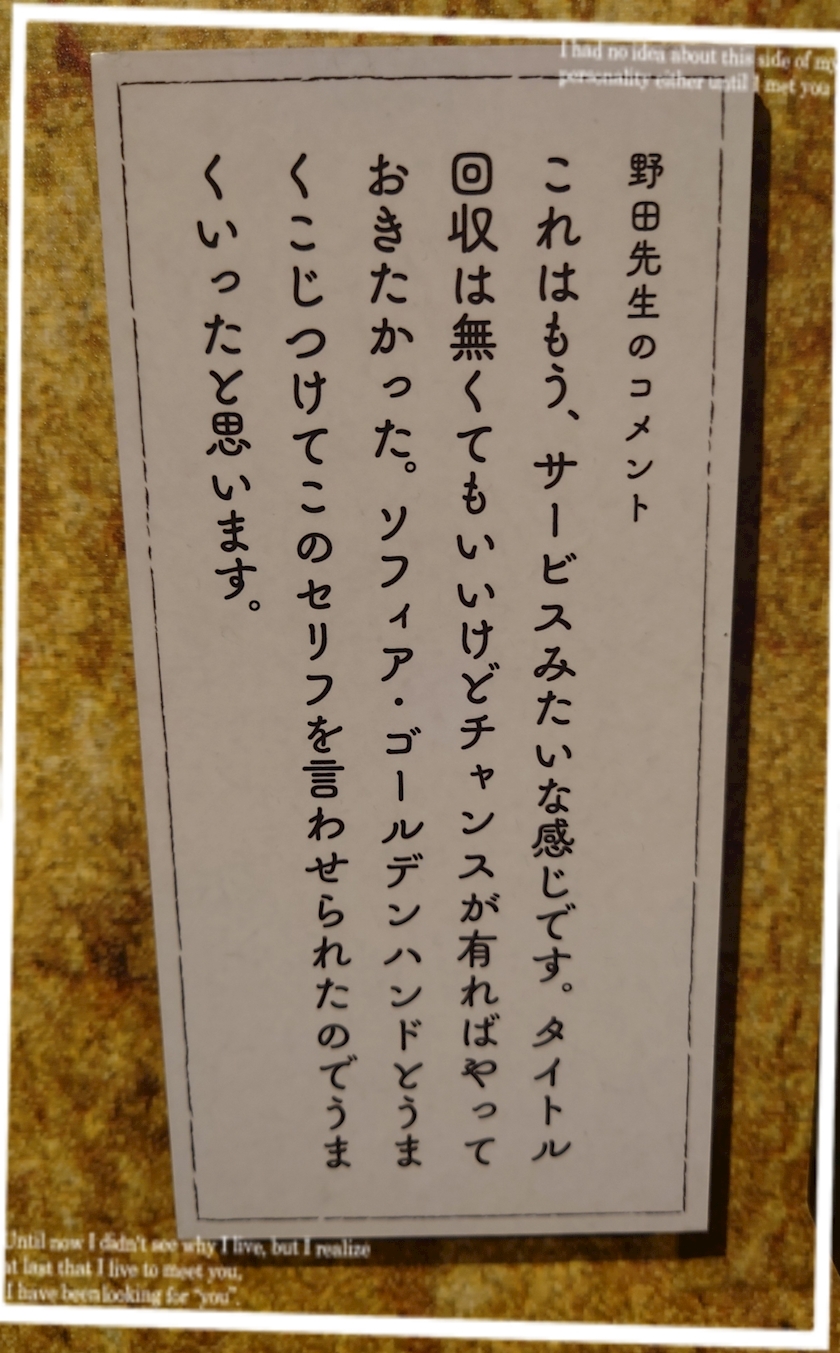 I had no idea about this side of my
personality either until I met you
野田先生のコメント
これはもう、サービスみたいな感じです。タイトル
回収は無くてもいいけどチャンスが有ればやって
おきたかった。ソフィア・ゴールデンハンドとうま
くこじつけてこのセリフを言わせられたのでうま
くいったと思います。
Until now I didn't see why I live, but I realize
at last that I live to meet you,
I have been looking for "you".